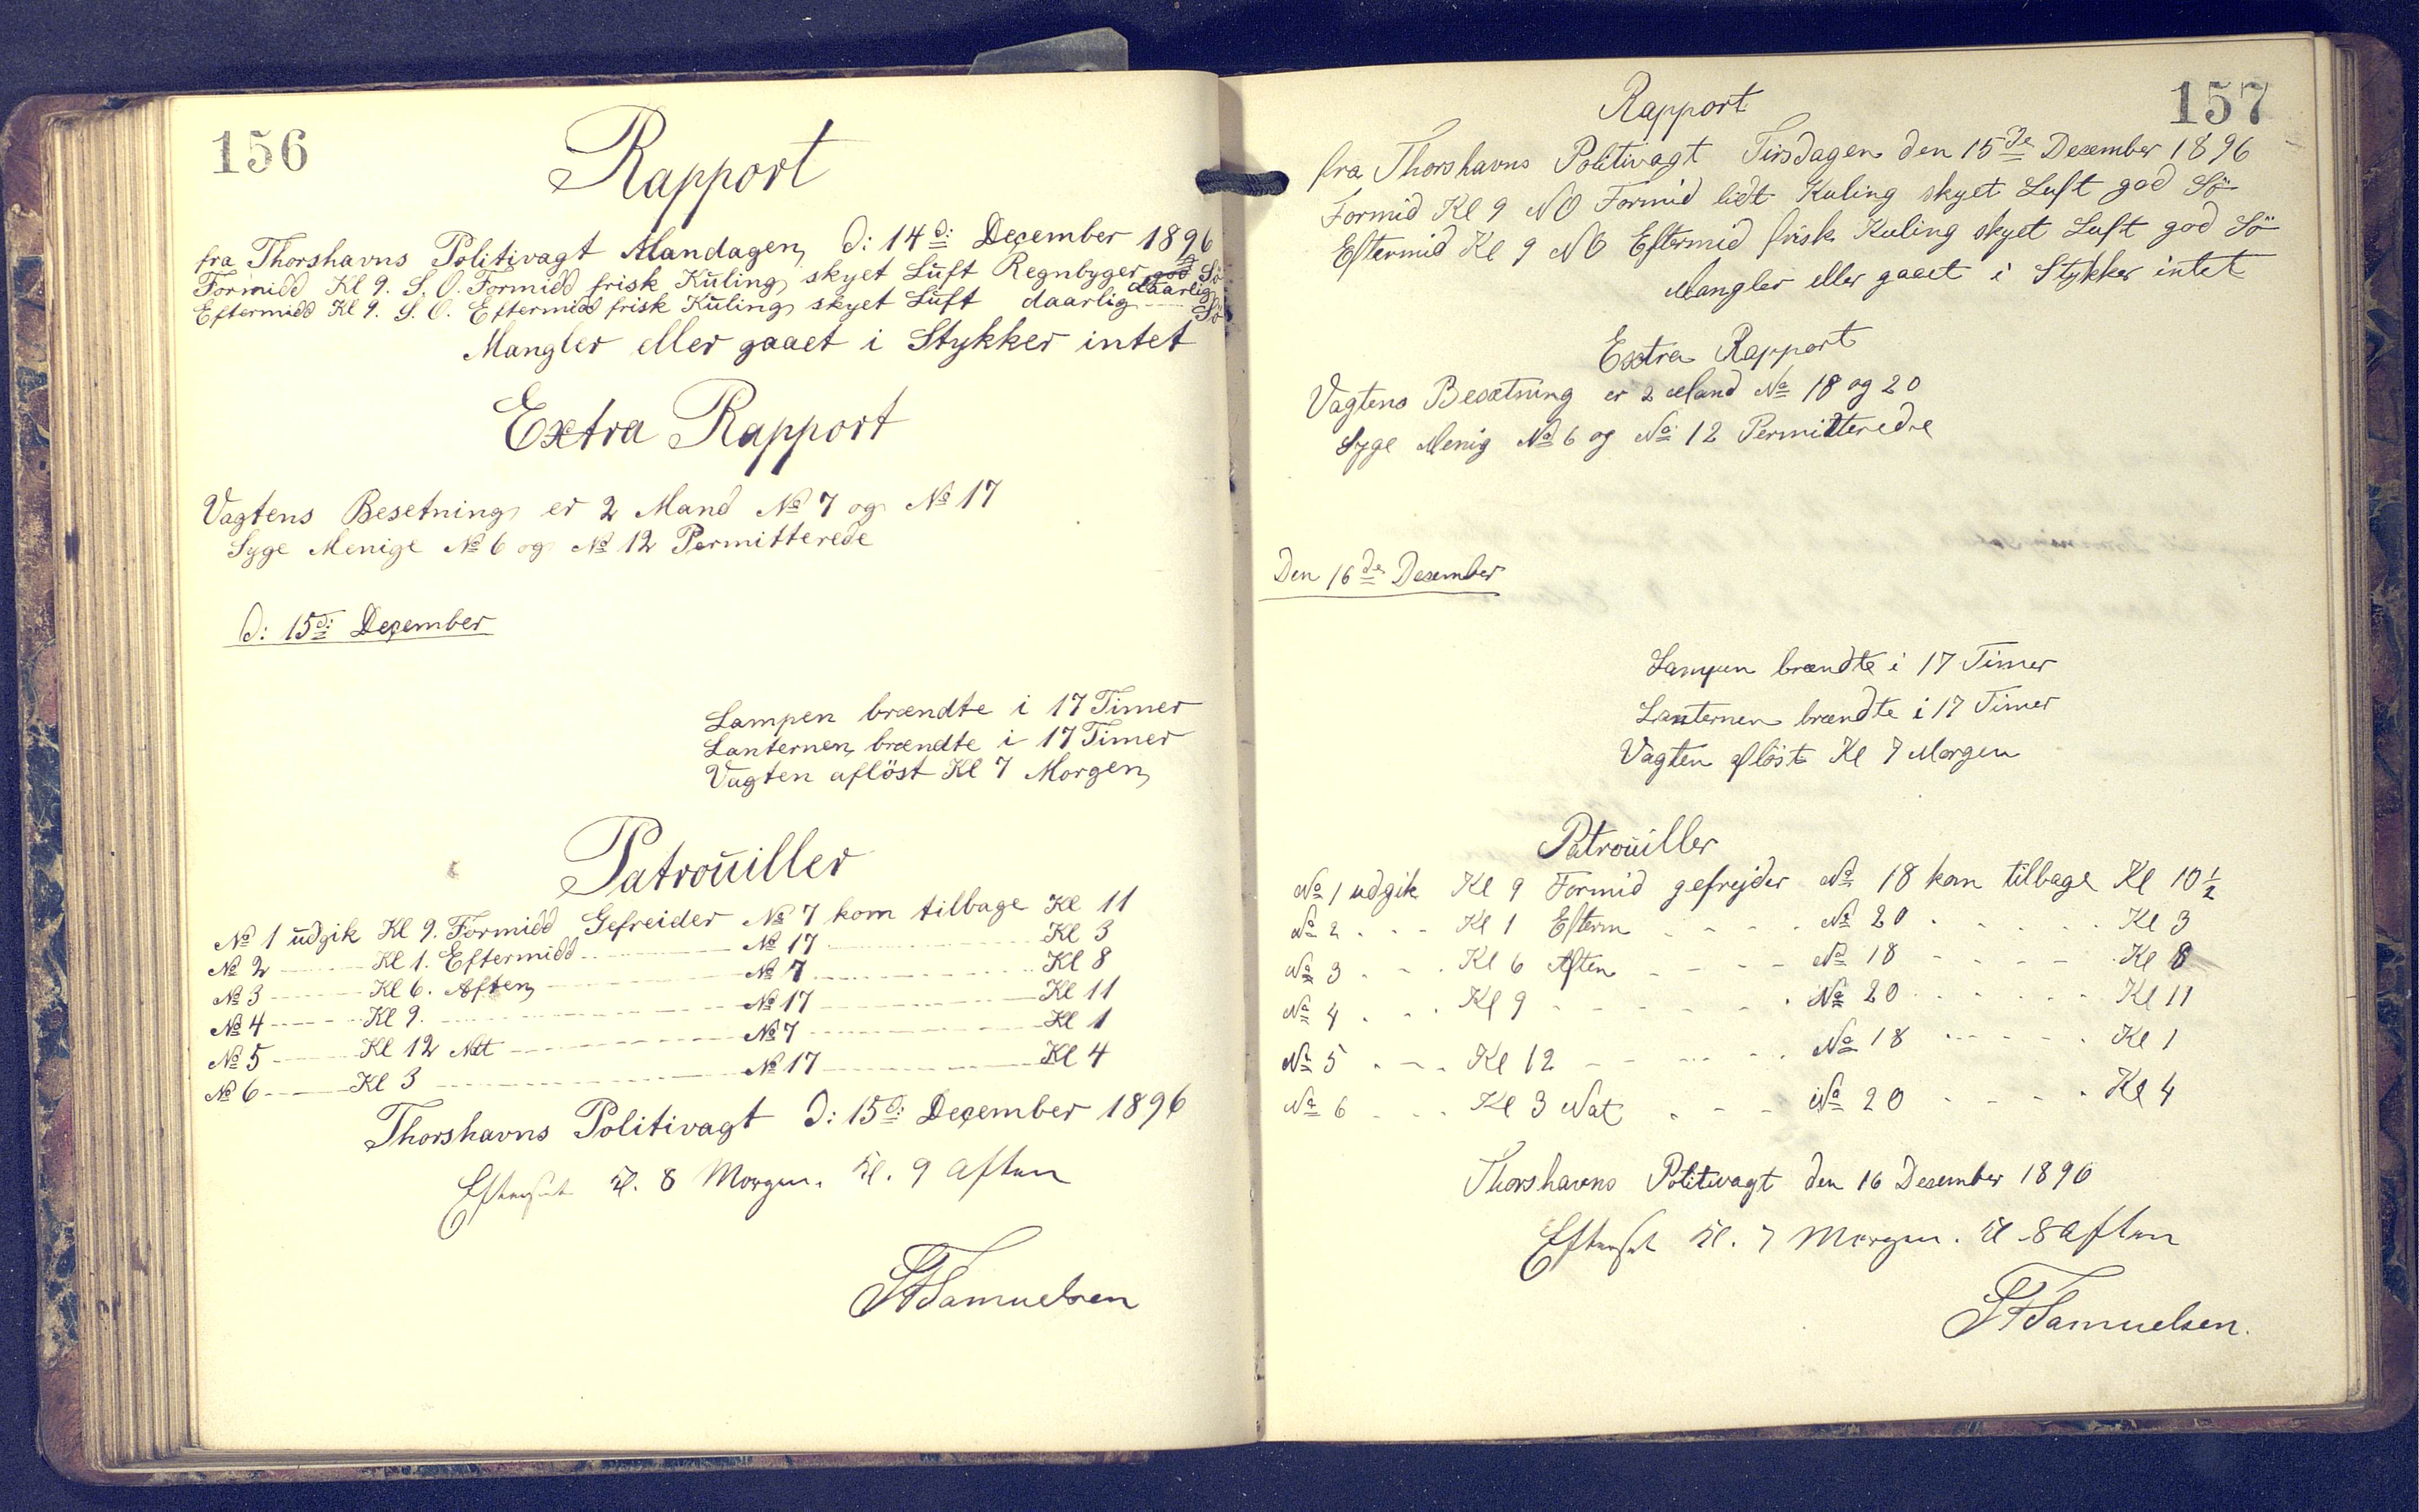 156
Rapport
fra Thorshavns Politivagt Mandagen, d: 14 d: December 1896
Formidd Kl 9. S. O. Formidd frisk Kuling skyet Luft Regnbyger god daarlig Sö
Eftermidd Kl 9. S. O. Eftermidd frisk Kuling skyet Luft daarlig Sö
Mangler eller gaaet i Stykker intet
Extra Rapport
Vagtens Besetning er 2 Mand No 7 og No 17
Syge Menige No 6 og No 12 Permitterede
d: 15 d: December
Lampen brændte i 17 Timer
Lanternen brændte i 17 Timer
Vagten aflöst Kl 7 Morgen
Patrouiller
No 1 udgik Kl 9. Formidd Gefreider No 7 kom tilbage Kl 11
No 2 Kl 1. Eftermidd No 17 Kl 3
No 3 Kl 6. Aften No 7 Kl 8
No 4 Kl 9. No 17 Kl 11
No 5 Kl 12 Natt No 7 Kl 1
No 6 Kl 3 No 17 Kl 4
Thorshavns Politivagt d: 15 d: December 1896
Efterset Kl. 8 Morgen. Kl. 9 Aften
Samuelsen
157
Rapport
fra Thorshavns Politivagt Tirsdagen den 15 de Desember 1896
Formid Kl 9 NO Formid lidt Kuling skyet Luft god Sö
Eftermid Kl 9 NO Eftermid frisk Kuling skyet Luft god Sö
Mangler eller gaaet i Stykker intet
Extra Rapport
Vagtens Besætning er 2 Mand No 18 og 20
Syge Menig No 6 og No 12 Permitterede
Den 16 de Desember
Lampen brændte i 17 Timer
Lanternen brændte i 17 Timer
Vagten aflöst Kl 7 Morgen
Patrouiller
No 1 udgik Kl 9 Formid gefrejder No 18 kom tilbage Kl 10 1/2
No 2 Kl 1 Efterm No 20 Kl 3
No 3 Kl 6 Aften No 18 Kl 8
No 4 Kl 9 No 20 Kl 11
No 5 Kl 12 No 18 Kl 1
No 6 Kl 3 Nat No 20 Kl 4
Thorshavns Politivagt den 16 Desember 1896
Efterset Kl. 7 Morgen. Kl 8 Aften
Samuelsen.